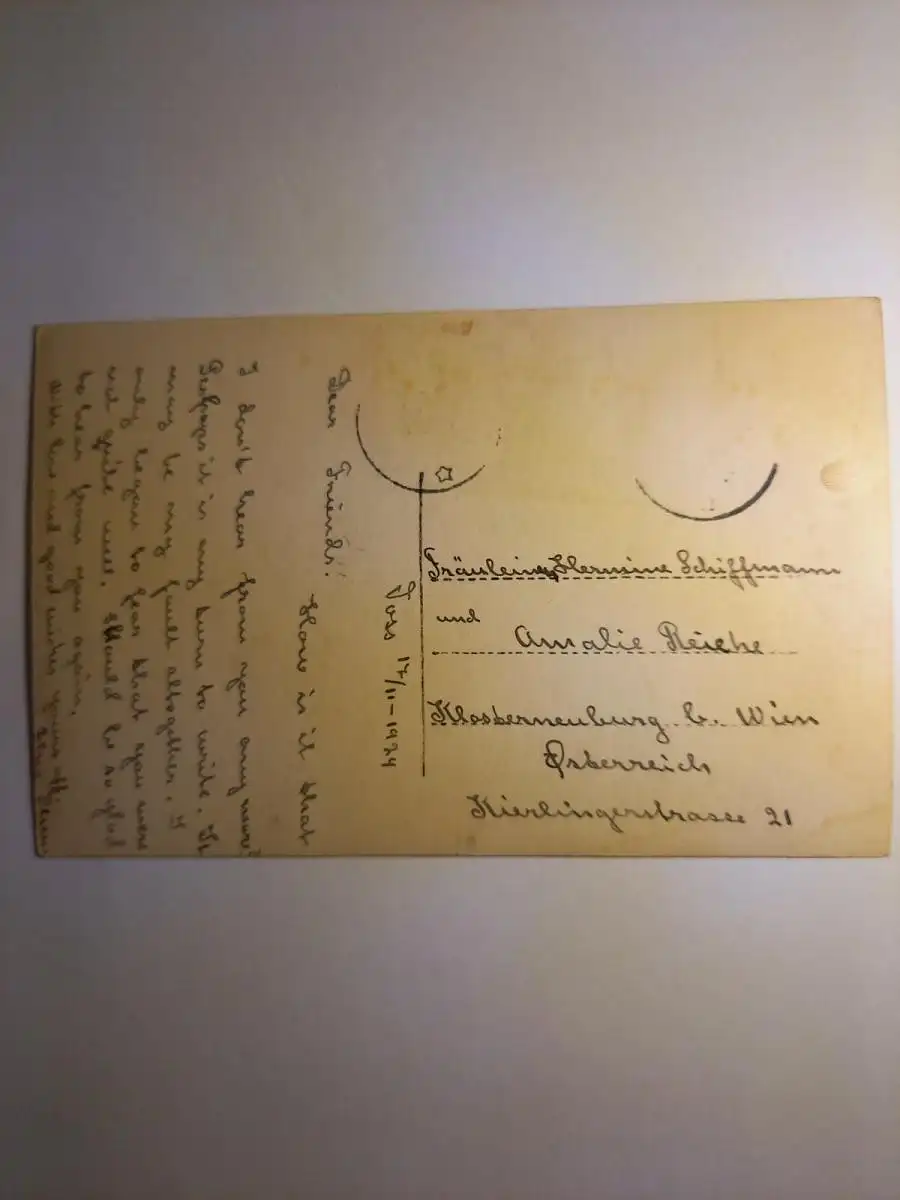 Voss 17/11-1924
Dear Friends!
How is it that
I don't hear from you any more?
Perhaps it is my turn to write. It
may be my fault altogether. I
only began to fear that you were
not quite well. Should be so glad
to hear from you again.
With love and good wishes yours
Fräulein Hermine Schiffmann
und
Amalie Reiche
Klosterneuburg b. Wien
Österreich
Kierlingerstrasse 21